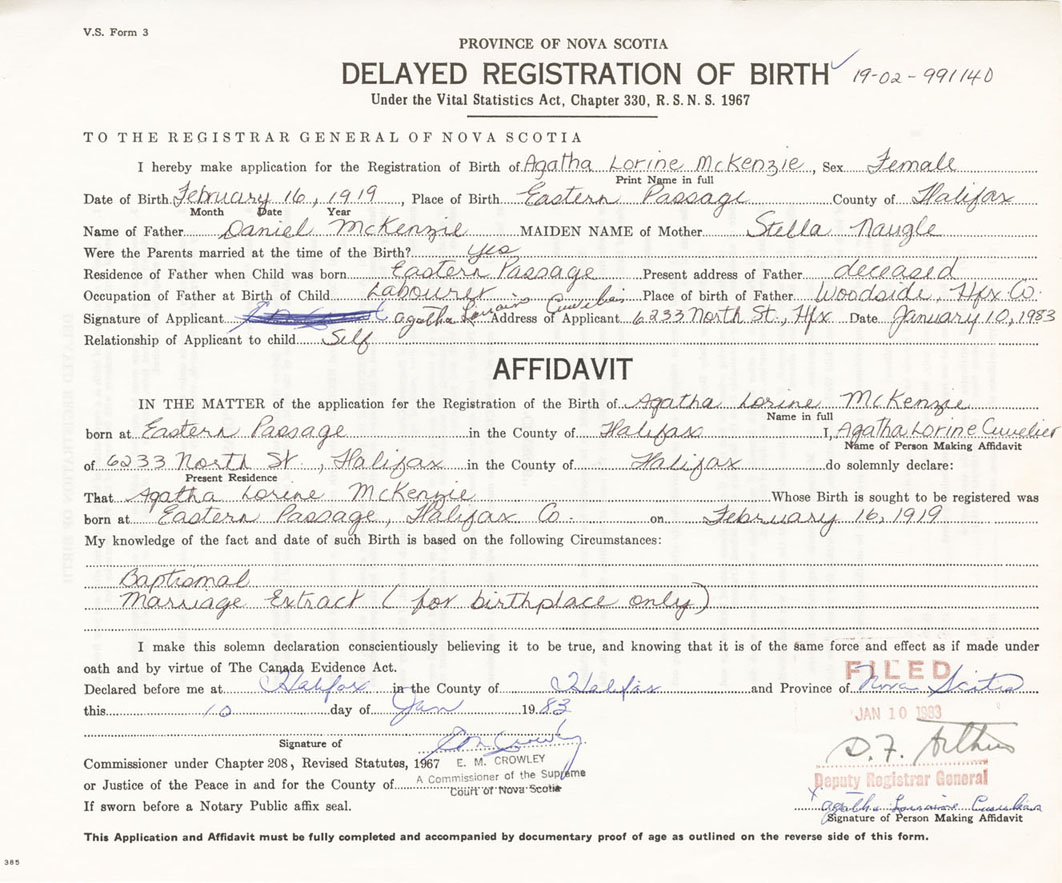 V.S. Form 3
PROVINCE OF NOVA SCOTIA
DELAYED REGISTRATION OF BIRTH 19-02-991140
Under the Vital Statistics Act, Chapter 330, R.S.N.S. 1967
TO THE REGISTRAR GENERAL OF NOVA SCOTIA
I hereby make application for the Registration of Birth of Agatha Lorine McKenzie, Sex Female
Print Name in full
Date of Birth February 16, 1919, Place of Birth Eastern Passage County of Halifax
Month Date Year
Name of Father Daniel McKenzie MAIDEN NAME of Mother Stella Naugle
Were the Parents married at the time of the Birth? yes
Residence of Father when Child was born Eastern Passage Present address of Father deceased
Occupation of Father at Birth of Child Labourer Place of birth of Father Woodside, Hfx Co.
Signature of Applicant Agatha Lorrain Cuvelier Address of Applicant 6233 North St., Hfx Date January 10, 1983
Relationship of Applicant to child Self
AFFIDAVIT
IN THE MATTER of the application for the Registration of the Birth of Agatha Lorine McKenzie
Name in full
born at Eastern Passage in the County of Halifax I, Agatha Lorine Cuvelier
Name of Person Making Affidavit
of 6233 North St., Halifax in the County of Halifax do solemnly declare:
Present Residence
That Agatha Lorine McKenzie Whose Birth is sought to be registered was
born at Eastern Passage, Halifax Co. on February 16, 1919
My knowledge of the fact and date of such Birth is based on the following Circumstances:
Baptismal
Marriage Extract (for birthplace only)
I make this solemn declaration conscientiously believing it to be true, and knowing that it is of the same force and effect as if made under
oath and by virtue of The Canada Evidence Act.
FILED
Declared before me at Halifax in the County of Halifax and Province of Nova Scotia
this 10 day of Jan 1983
JAN 10 1983
Signature of E M Crowley
D. F. Arthur
Commissioner under Chapter 208, Revised Statutes, 1967 E. M. CROWLEY
Deputy Registrar General
or Justice of the Peace in and for the County of A Commissioner of the Supreme
Court of Nova Scotia
x Agatha Lorraine Cuvelier
If sworn before a Notary Public affix seal.
Signature of Person Making Affidavit
This Application and Affidavit must be fully completed and accompanied by documentary proof of age as outlined on the reverse side of this form.
385